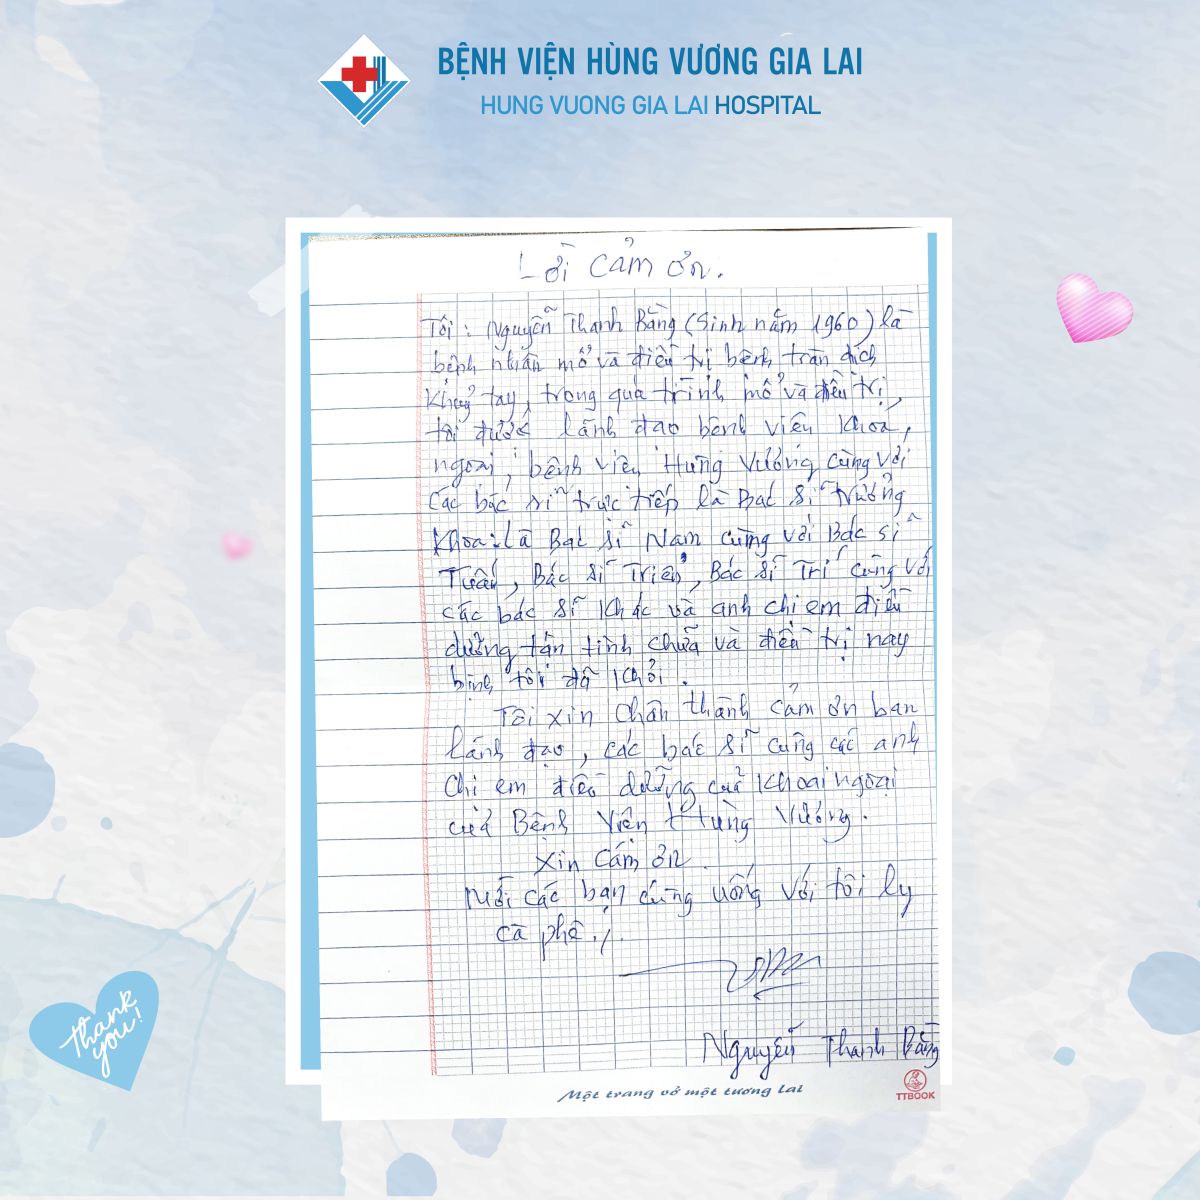 BỆNH VIỆN HÙNG VƯƠNG GIA LAI
HUNG VUONG GIA LAI HOSPITAL
Lời cảm ơn.
Tôi: Nguyễn Thanh Bằng (Sinh năm 1960) là
bệnh nhân mổ và điều trị bệnh tràn dịch
khuỷ tay, trong quá trình mổ và điều trị,
tôi được lãnh đạo bệnh viên khoa,
ngoại, bệnh viên Hùng Vương cùng với
các bác sĩ trực tiếp là Bác sĩ trưởng
khoa: là Bác sĩ Nam cùng với Bác sĩ
Tuấn, Bác sĩ Triển, Bác sĩ Trí cùng với
các bác sĩ khác và anh chi em điều
dưỡng tận tình chữa và điều trị nay
bịnh tôi đã khỏi.
Tôi xin chân thành cảm ơn ban
lãnh đạo, các bác sĩ cùng các anh
chi em điều dưỡng của khoai ngoại
của Bệnh Viên Hùng Vương.
Xin cảm ơn.
Mời các bạn cùng uống với tôi ly
cà phê./.
Nguyễn Thanh Bằng
Một trang vở một tương lai
TTBOOK
Thank
you!